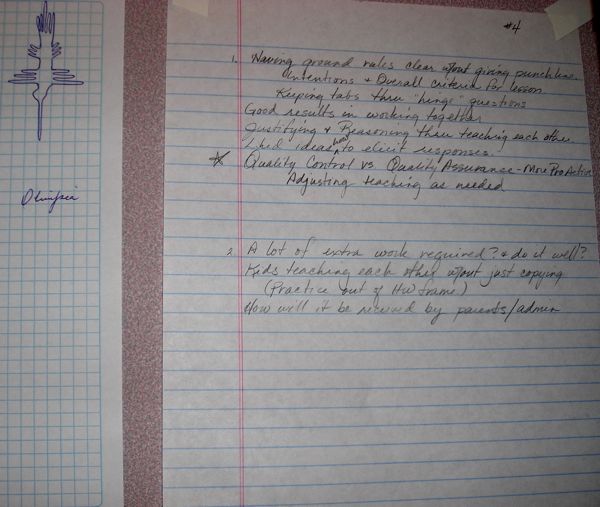 #4
1. Having ground rules clear w/out giving punchline.
Intentions + Overall criteria for lesson
Keeping tabs thru "hinge" questions
Good results in working together
Justifying & Reasoning thru teaching each other
Liked ideas how to elicit responses.
Quality Control vs Quality Assurance - More Pro Active
Adjusting teaching as needed
2. A lot of extra work required? & do it well?
Kids teaching each other w/out just copying
(Practice out of HW frame)
How will it be received by parents/admin
Olimpia